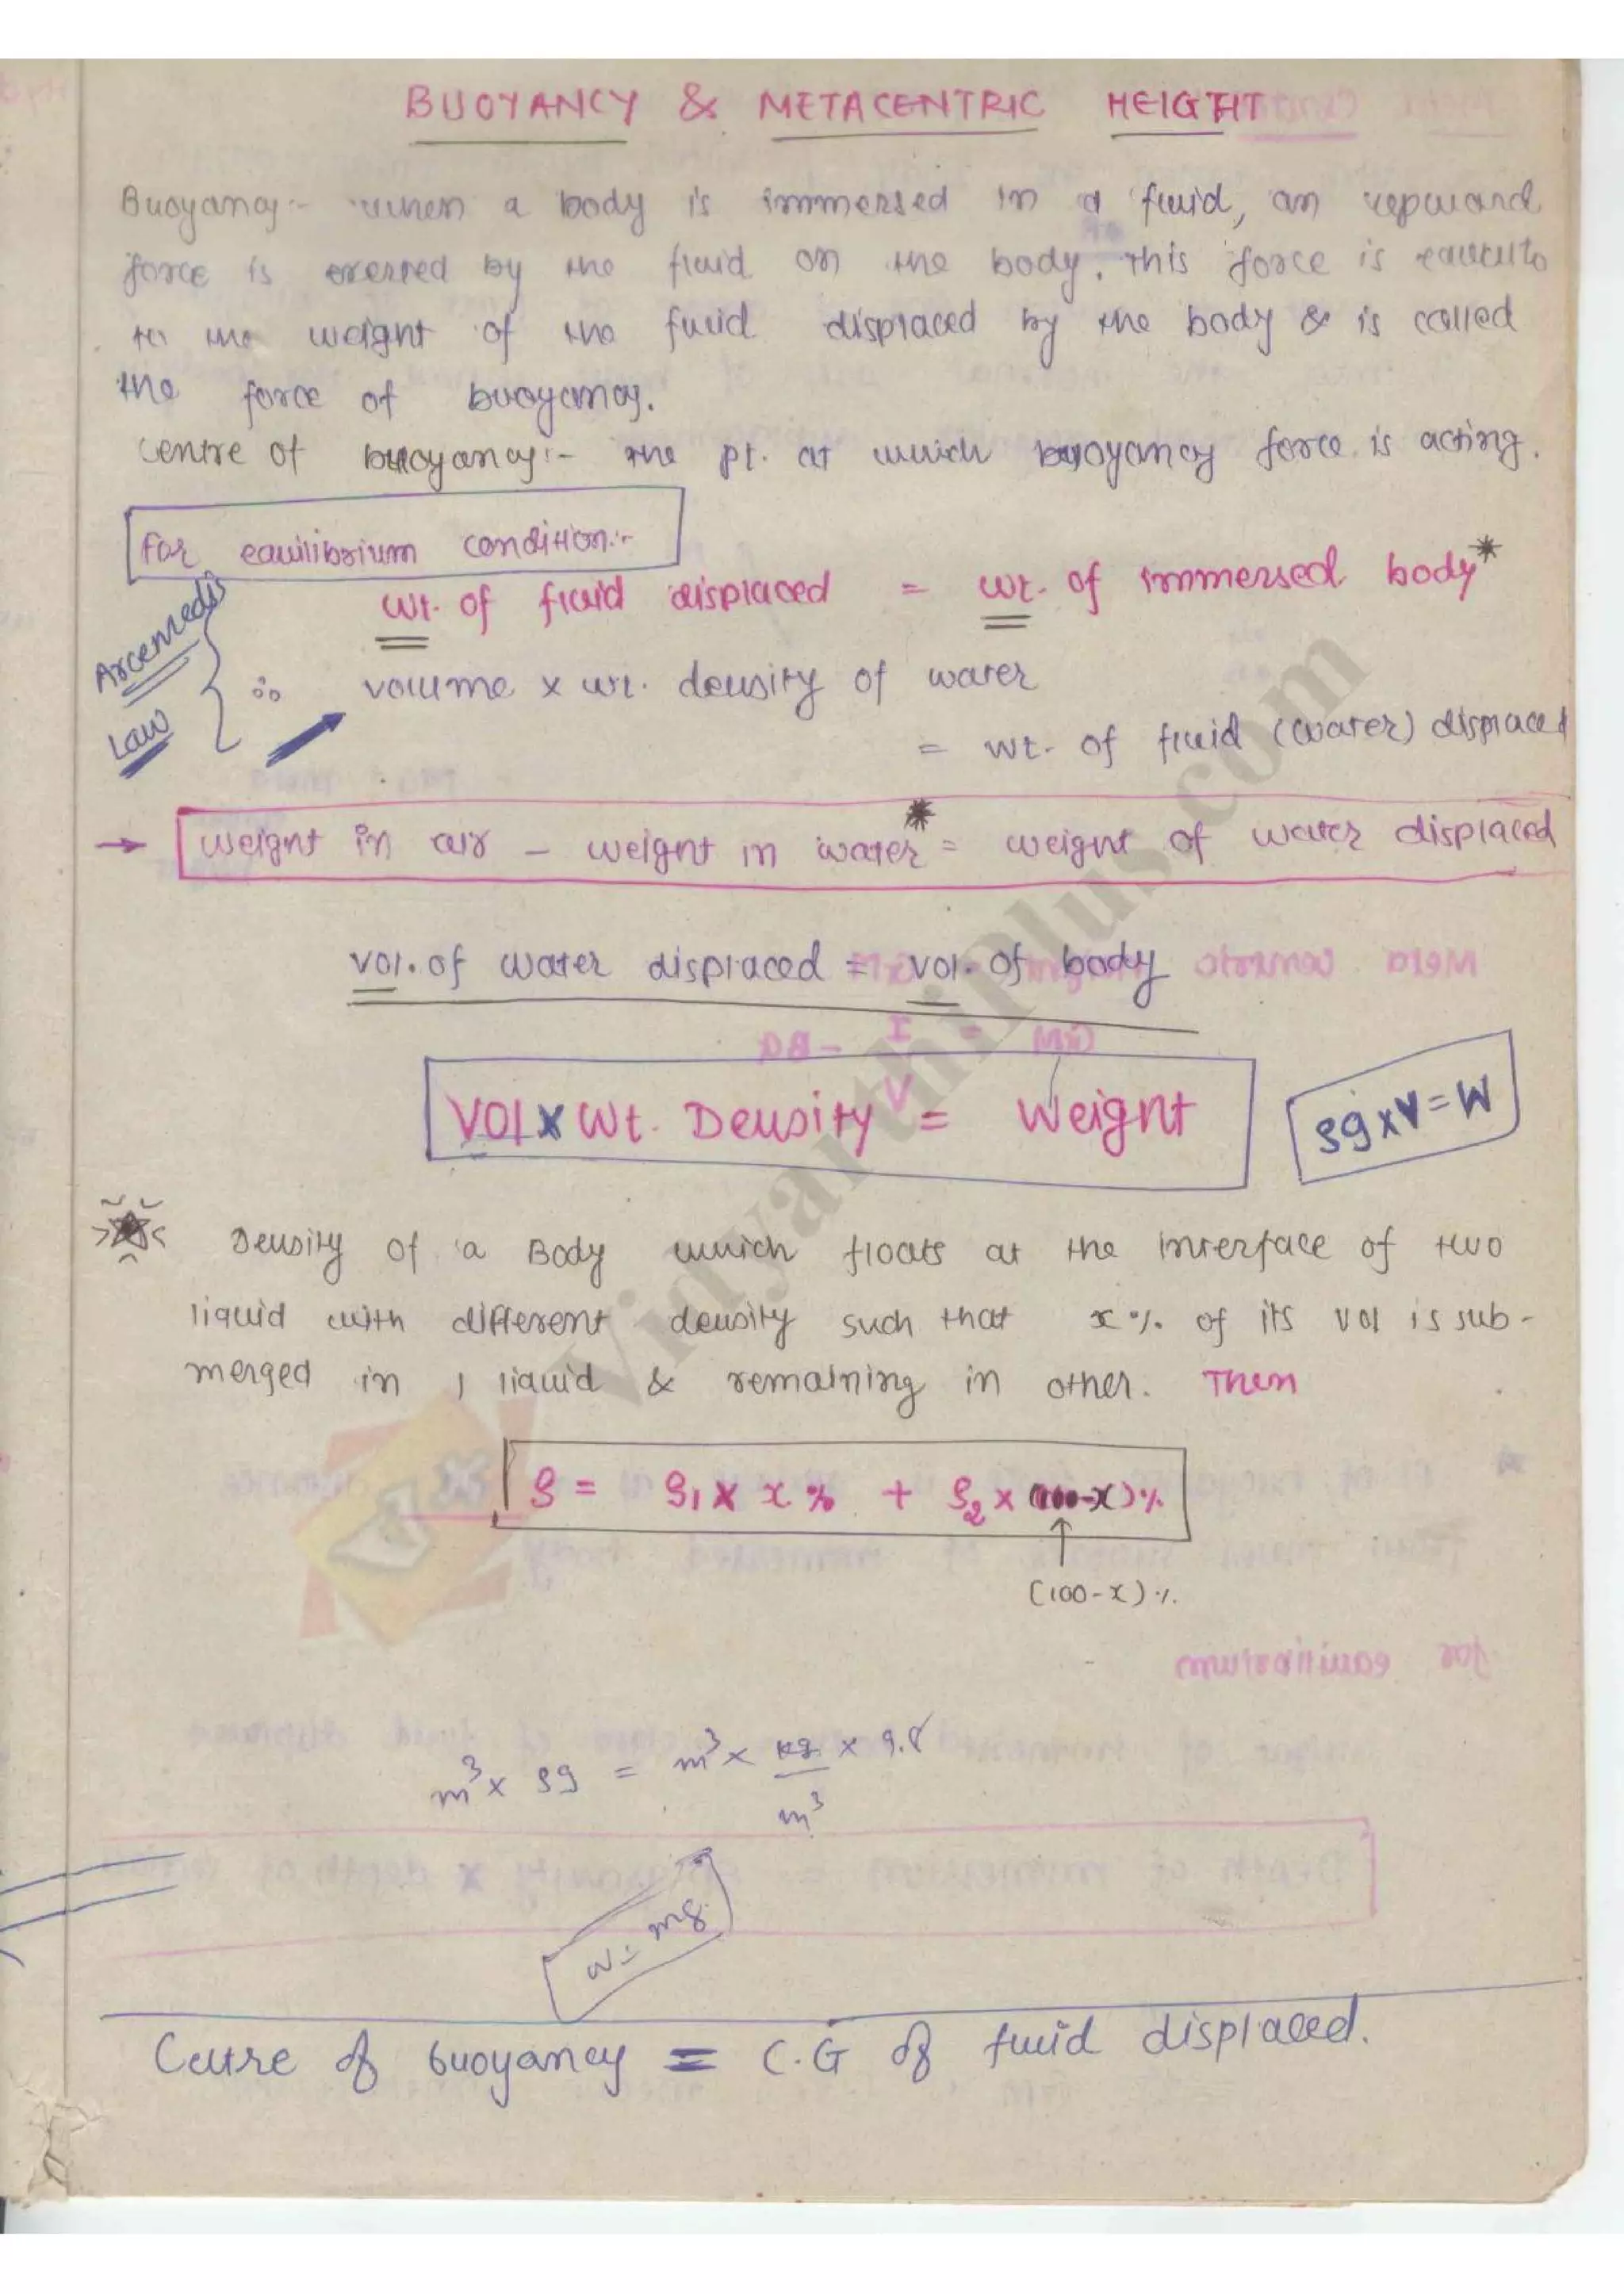 BUOYANCY & METACENTRIC HEIGHT
Buoyancy:- when a body is immersed in a fluid, an upward
force is exerted by the fluid on the body. This force is equal to
to the weight of the fluid displaced by the body & is called
the force of buoyancy.
Centre of buoyancy:- The pt. at which buoyancy force is acting.
For equilibrium condition:-
wt. of fluid displaced = wt. of immersed body*
Arcemedis
Law
∴ volume x wt. density of water
= wt. of fluid (water) displaced
→ weight in air - weight in water* = weight of water displaced
vol. of water displaced = vol. of body
Vol x Wt. Density = Weight
ρg x V = W
Density of a Body which floats at the interface of two
liquid with different density such that x % of its vol is sub-
merged in 1 liquid & remaining in other. Then
ρ = ρ1 x x % + ρ2 x (100-x) %
(100-x) %
m³ x ρg = m³ x kg/m³ x 9.8
w = mg
Centre of buoyancy = C.G of fluid displaced.
Vidyarthiplus.com